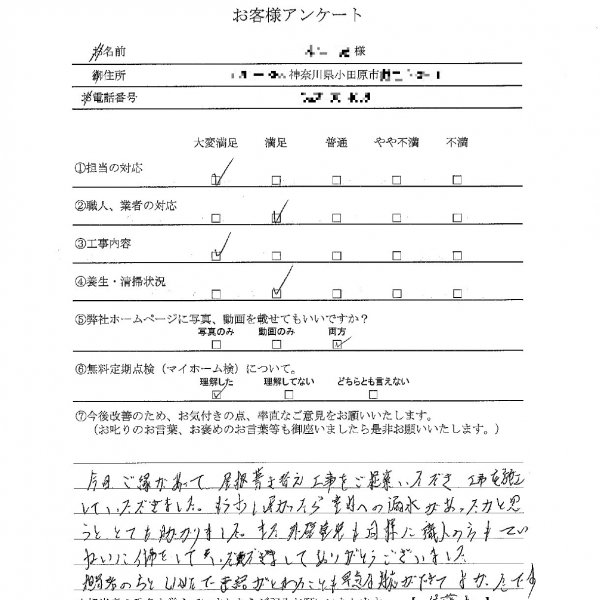 お客様アンケート
お名前 様
御住所 神奈川県小田原市
お電話番号
大変満足 満足 普通 やや不満 不満
①担当の対応
②職人、業者の対応
③工事内容
④養生・清掃状況
⑤弊社ホームページに写真、動画を載せてもいいですか？
写真のみ 動画のみ 両方
⑥無料定期点検（マイホーム検）について。
理解した 理解してない どちらとも言えない
⑦今後改善のため、お気付きの点、率直なご意見をお願いいたします。
（お叱りのお言葉、お褒めのお言葉等も御座いましたら是非お願いいたします。）
今回ご縁があって 屋根葺き替え工事をご提案いただき 工事を施工
していただきました。もう少し遅かったら 室内への漏水があったかと思
うと、とても助かりました。また 外壁 も同様に職人の方もてい
ねいに仕事をして ありがとうございました
担当者の方と LINEで連絡がとれたことも が できて よかったです